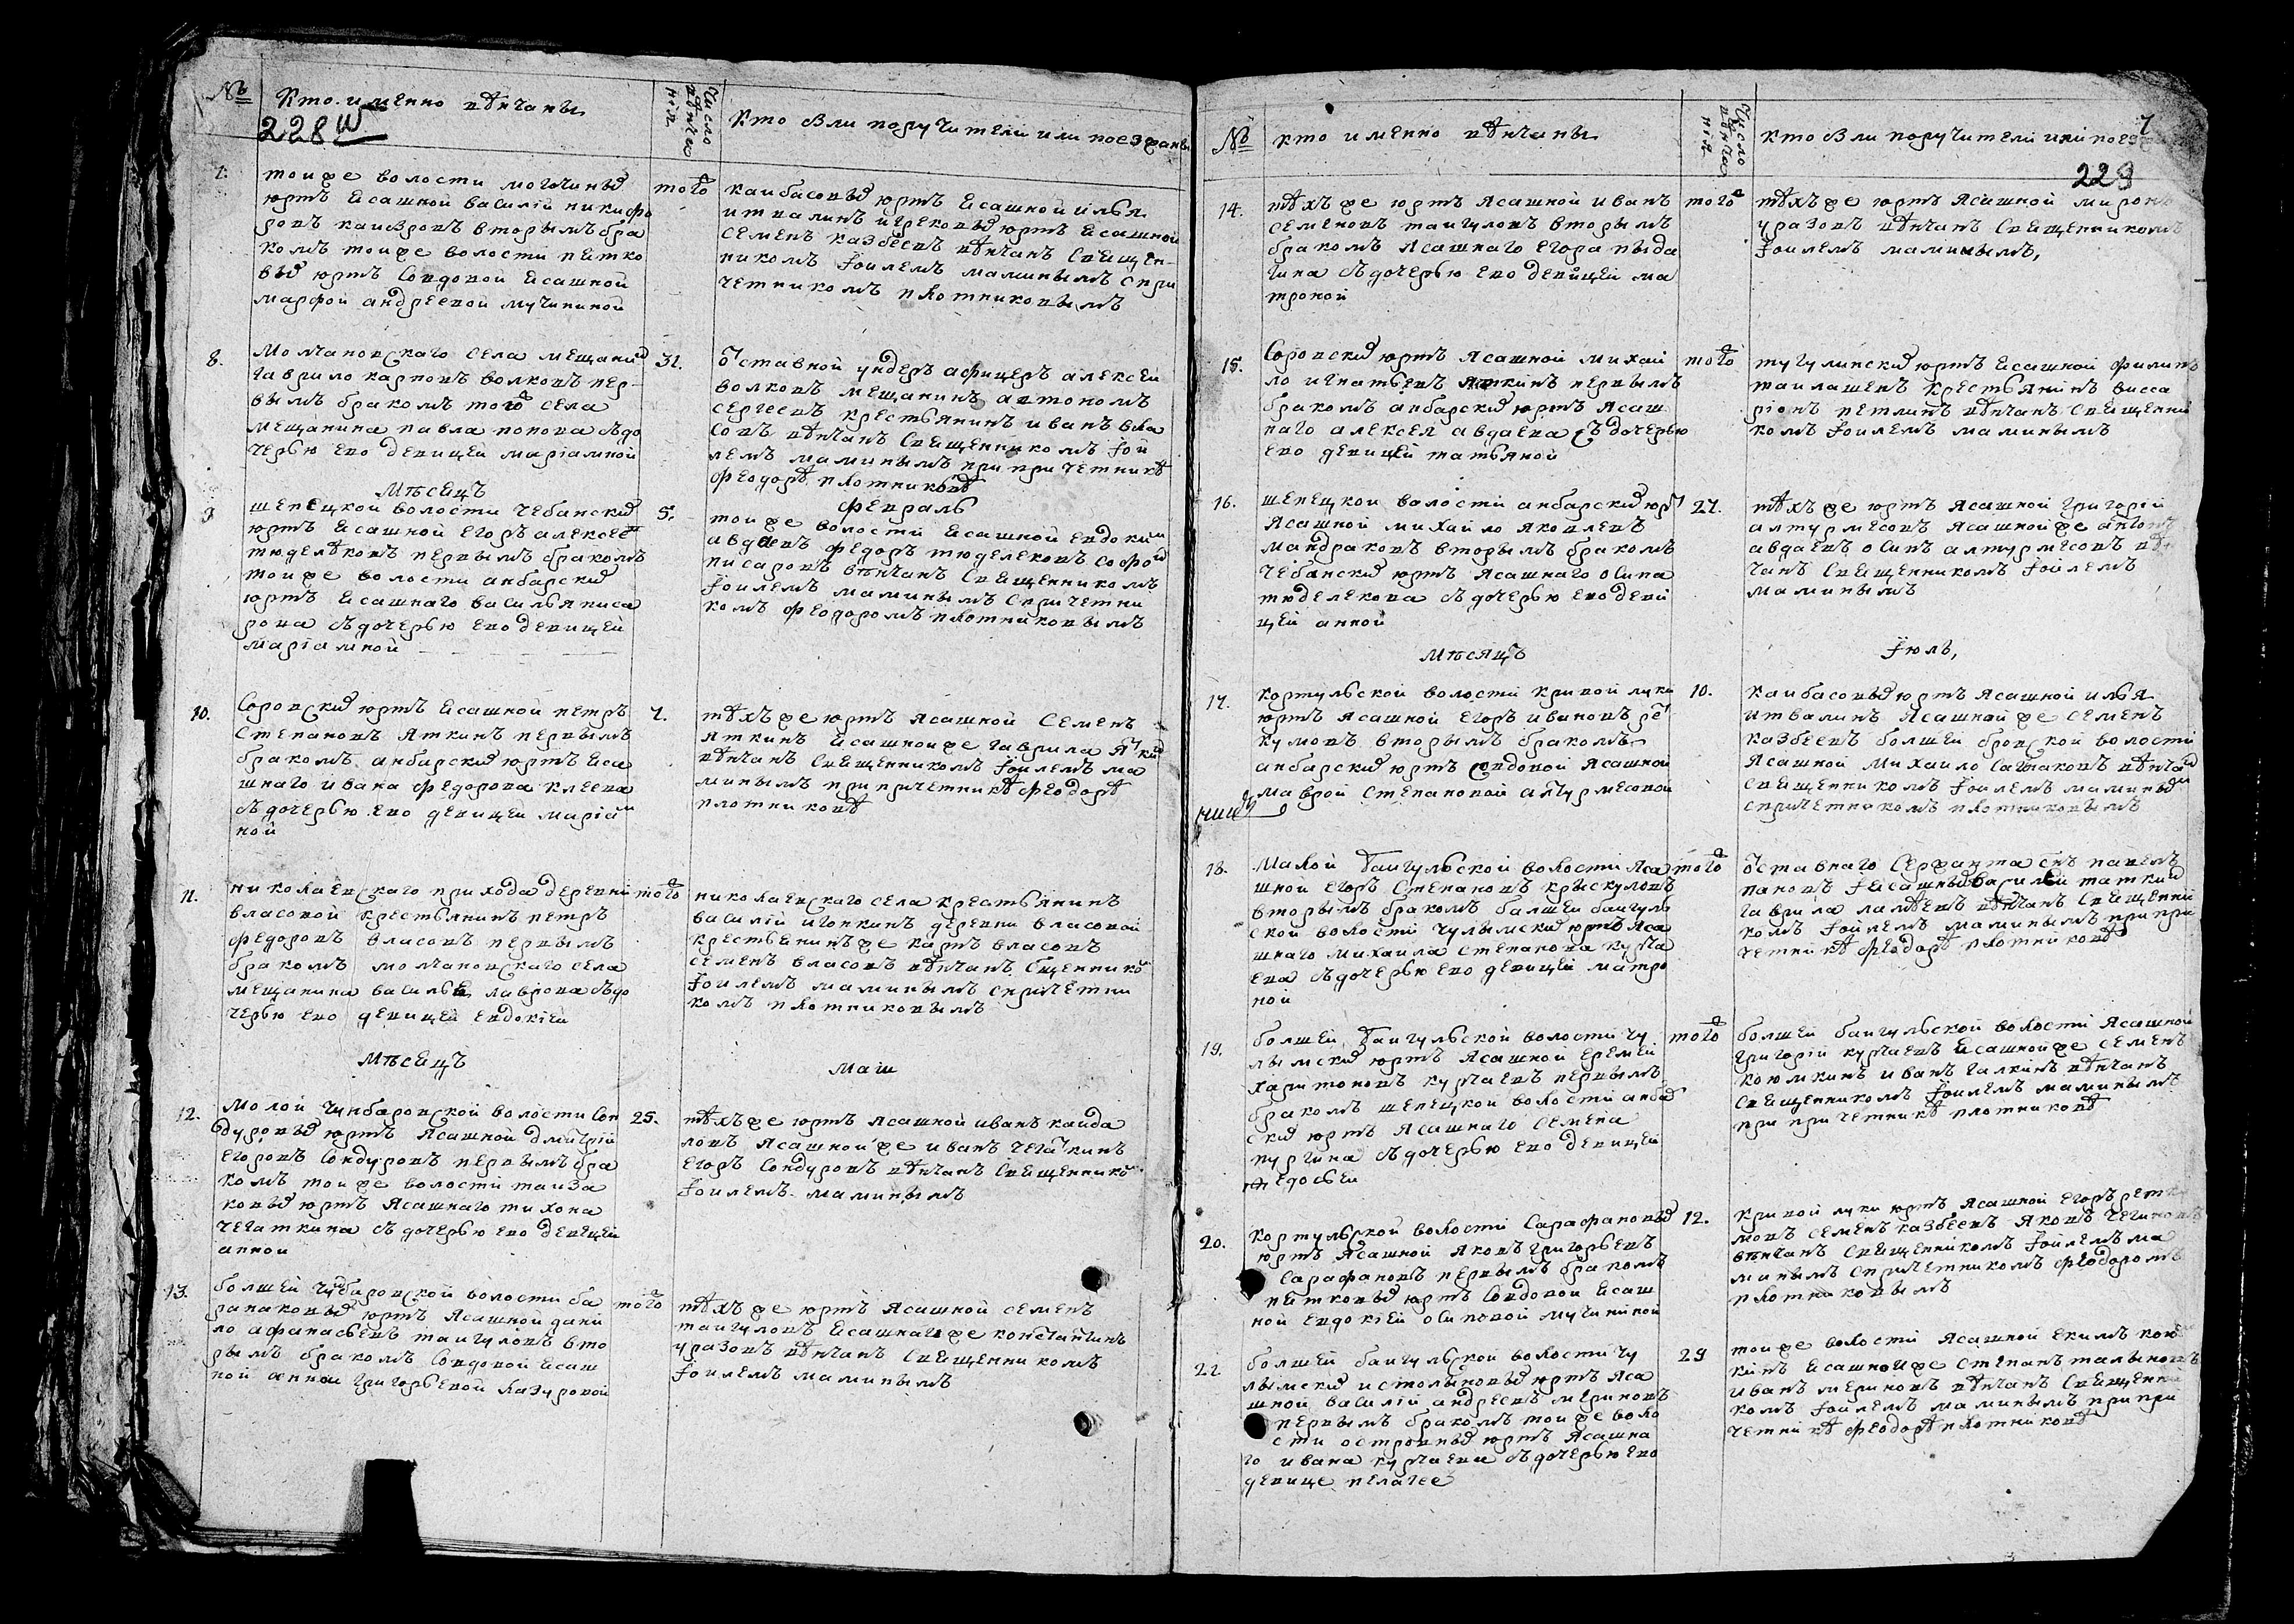 №
Кто именно вѣнчаны
Число вѣнчанія
Кто были поручители или поезжаны
228 об
7.
тоиже волости мочиных
юртъ ясашной василій никифо
ровъ каибровъ вторымъ бра
комъ тоиже волости питко
выхъ юртъ вдовой ясашной
марфой андреевой мучининой
того
каибасовыхъ юртъ ясашной илья
итвалинъ
семенъ казбеевъ вѣнчанъ священ-
никомъ Іоилемъ маминымъ спри
четникомъ плотниковымъ
8.
Молчановскаго села мещанинъ
гаврило карповъ волковъ пер-
вымъ бракомъ того села
мещанина павла попова сдо
черью ево девицей маріамной
31.
отставной ундеръ афицеръ алексей
волковъ мещанинъ автономъ
сергеевъ крестьянинъ иванъ вла
совъ вѣнчанъ священникомъ Іои
лемъ маминымъ при причетникѣ
феодорѣ плотниковѣ
Мѣсецъ
февраль
9
шепецкой волости чебанских
юртъ ясашной егоръ алексеевъ
тюделековъ первымъ бракомъ
тоиже волости анбарских
юртъ ясашнаго василья писа
рова сдочерью ево девицей
маріамной
5.
тоиже волости ясашной евдокимъ
авдаевъ федоръ тюделековъ софонъ
писаровъ вѣнчанъ священникомъ
Іоилемъ маминымъ спричетни
комъ феодоромъ плотниковымъ
10.
Соровских юртъ ясашной петръ
степановъ яткинъ первымъ
бракомъ анбарских юртъ яса
шнаго ивана федорова клеева
сдочерью ево девицей маріам
ной
7.
тѣхъже юртъ ясашной семенъ
яткинъ ясашноиже гаврила яткинъ
вѣнчанъ священникомъ Іоилемъ ма
минымъ при причетникѣ феодорѣ
плотниковѣ
11.
николаевскаго прихода деревни
власовой крестьянинъ петръ
федоровъ власовъ первымъ
бракомъ молчановскаго села
мещанина василья лаврова сдо
черью ево девицей евдокіей
того
николаевскаго села крестьянинъ
василій игонкинъ деревни власовой
крестьянинъже карпъ власовъ
семенъ власовъ вѣнчанъ священнико
Іоилемъ маминымъ спричетни
комъ плотниковымъ
Мѣсецъ
маій
12.
Малой чунбаровской волости сон
дуровыхъ юртъ ясашной дмитрій
егоровъ сондуровъ первымъ бра
комъ тоиже волости таиза
ковых юртъ ясашнаго тихона
чегаткина сдочерью ево девицей
анной
25.
тѣхъже юртъ ясашной иванъ каида
ловъ ясашной же иванъ чегаткинъ
егоръ сондуровъ вѣнчанъ священнико
Іоилемъ маминымъ
13.
болшей чунбаровской волости ба
ранаковыхъ юртъ ясашной дани
ло афанасьевъ таигуловъ вто
рымъ бракомъ вдовой ясаш
ной анной григорьевой казуровой
того
тѣхъже юртъ ясашной семенъ
таигуловъ ясашнагоже константинъ
уразовъ вѣнчанъ священникомъ
Іоилемъ маминымъ
№
кто именно вѣнчаны
Число вѣнчанія
кто были поручители или поезжаны
7
229
14.
тѣхъже юртъ ясашной иванъ
семеновъ таигуловъ вторымъ
бракомъ ясашнаго егора пыда
гина сдочерью ево девицей ма
троной
того
тѣхъже юртъ ясашной миронъ
уразовъ вѣнчанъ священникомъ
Іоилемъ маминымъ,
15.
Соровских юртъ ясашной михаи
ло игнатьевъ яткинъ первымъ
бракомъ анбарских юртъ ясаш
наго алексея авдаева сдочерью
ево девицей татьяной
того
тугулинских юртъ ясашной филипъ
таилашевъ крестьянинъ висса
ріонъ петлинъ вѣнчанъ священни
комъ Іоилемъ маминымъ
16.
шепецкой волости анбарских юртъ
ясашной михаило яковлевъ
мандраковъ вторымъ бракомъ
чебанских юртъ ясашнаго осипа
тюделекова сдочерью ево деви
цей анной
27.
тѣхъже юртъ ясашной григорій
алтурмесовъ ясашной же антонъ
авдаевъ осипъ алтурмесовъ вѣн
чанъ священникомъ Іоилемъ
маминымъ
Мѣсяцъ
Іюль,
17.
кортульской волости кривой луки
юртъ ясашной егоръ ивановъ рет
кумовъ вторымъ бракомъ
анбарских юртъ вдовой ясашной
маврой степановой алтурмесовой
10.
каибасовыхъ юртъ ясашной илья
итвалинъ ясашной же семенъ
казбеевъ болшей бровской волости
ясашной михаило сатаковъ вѣнчанъ
священникомъ Іоилемъ маминымъ
спричетникомъ плотниковымъ
18.
Малой баигульской волости яса
шной егоръ степановъ крыскуловъ
вторымъ бракомъ балшей баигуль
ской волости чулымских юртъ яса
шнаго михаила степанова курта
ева сдочерью ево девицей матро
ной
того
отставнаго сержанта сынъ павелъ
пановъ ясашных василей таткинъ
гаврила лалѣевъ вѣнчанъ священни
комъ Іоилемъ маминымъ при при
четникѣ феодорѣ плотниковѣ
19.
болшей баигульской волости чу
лымских юртъ ясашной еремей
харитоновъ куртаевъ первымъ
бракомъ шепецкой волости анбар
ских юртъ ясашнаго семена
пургина сдочерью ево девицей
федосьей
того
болшей баигульской волости ясашной
григорій куртаевъ ясашнойже семенъ
коюмкинъ иванъ галкинъ вѣнчанъ
священникомъ Іоилемъ маминымъ
при причетникѣ плотниковѣ
20.
кортульской волости сарафановых
юртъ ясашной яковъ григорьевъ
сарафановъ первымъ бракомъ
питковых юртъ вдовой ясаш
ной евдокіей осиповой мучининой
12.
кривой луки юртъ ясашной егоръ ретку
мовъ семенъ казбеевъ яковъ
вѣнчанъ священникомъ Іоилемъ ма
минымъ спричетникомъ феодоромъ
плотниковымъ
22
болшей баигульской волости чу
лымских истолыновых юртъ яса
шной василій андреевъ мериновъ
первымъ бракомъ тоиже воло
сти островных юртъ ясашна
го ивана куртаева сдочерью ево
девице пелагее
29
тоиже волости ясашной екимъ коюм
кинъ ясашнойже степанъ талыновъ
иванъ мериновъ вѣнчанъ священни
комъ Іоилемъ маминымъ при при
четникѣ феодорѣ плотниковѣ